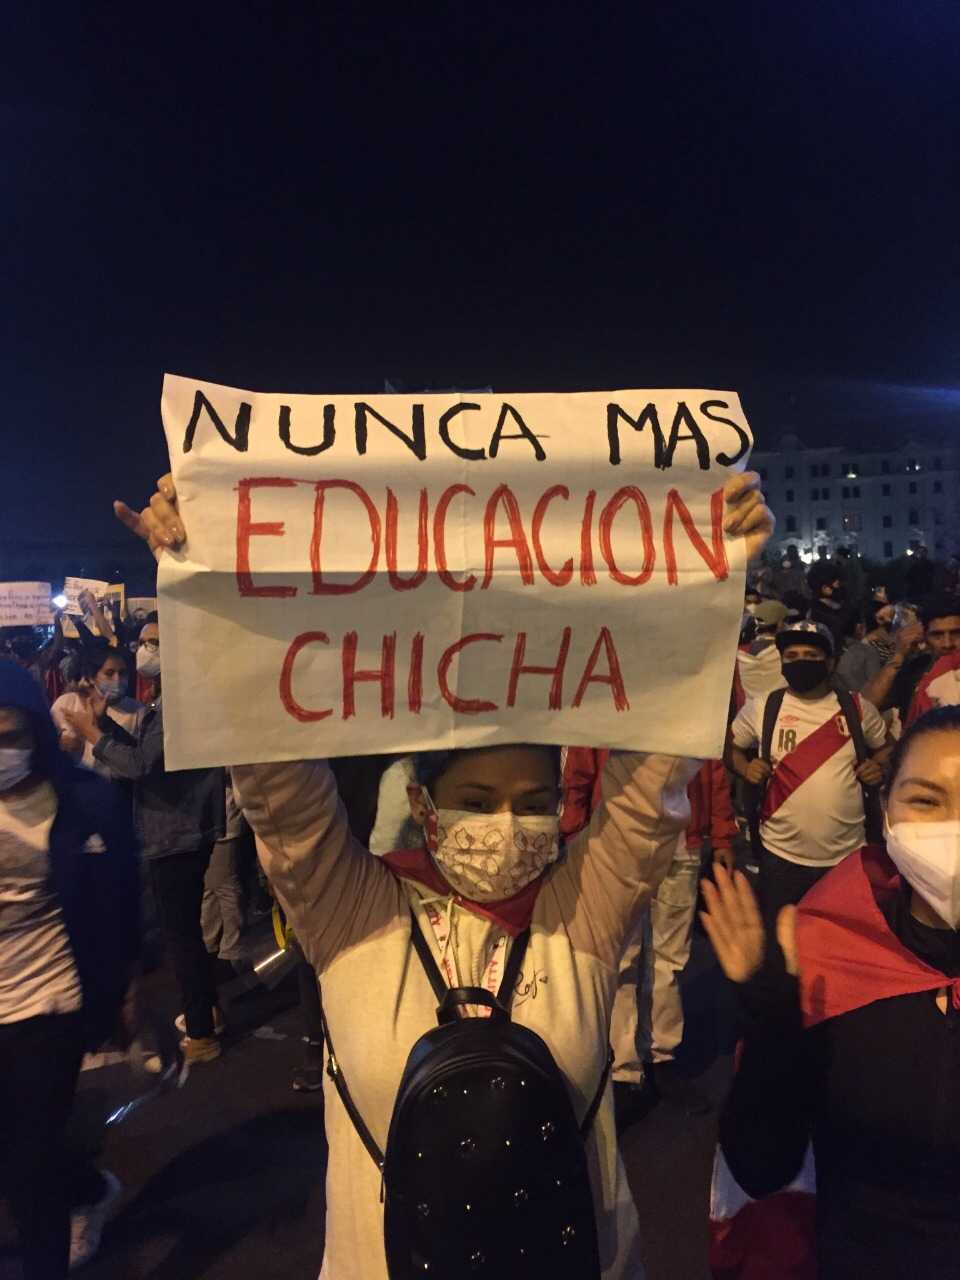 NUNCA MAS
EDUCACION
CHICHA
18